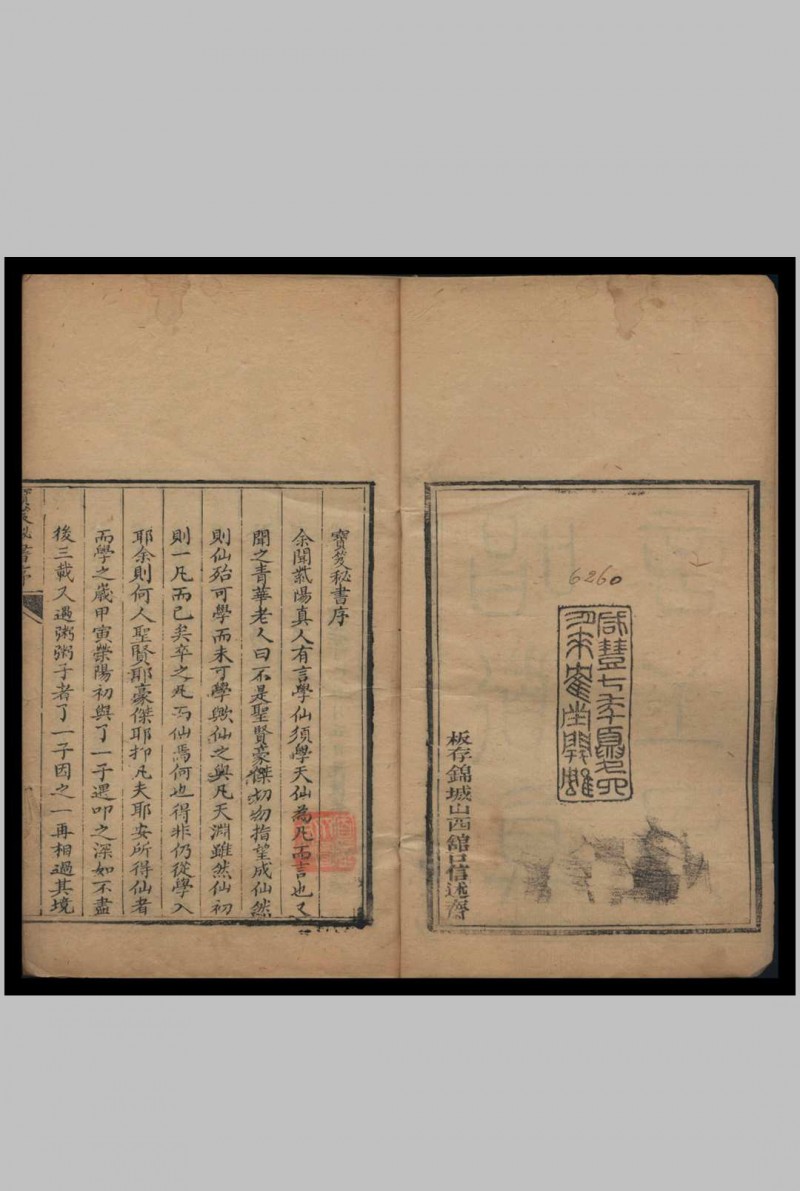 6260
咸豐七年夏
板存錦城山西館口信述齋
寶笈秘書序
余聞氣陽真人有言學仙須學天仙為凡而言也又
聞之青華老人曰不是聖賢豪傑切勿指望成仙然
則仙殆可學而未可學歟仙之與凡天淵雖然仙初
則一凡而已矣卒之凡而仙焉何也得非仍從學入
耶余則何人聖賢耶豪傑耶抑凡夫耶安所得仙者
而學之歲甲寅滎陽初與了一子遇叩之深如不盡
後三載又遇粥粥子者了一子因之一再相過其境